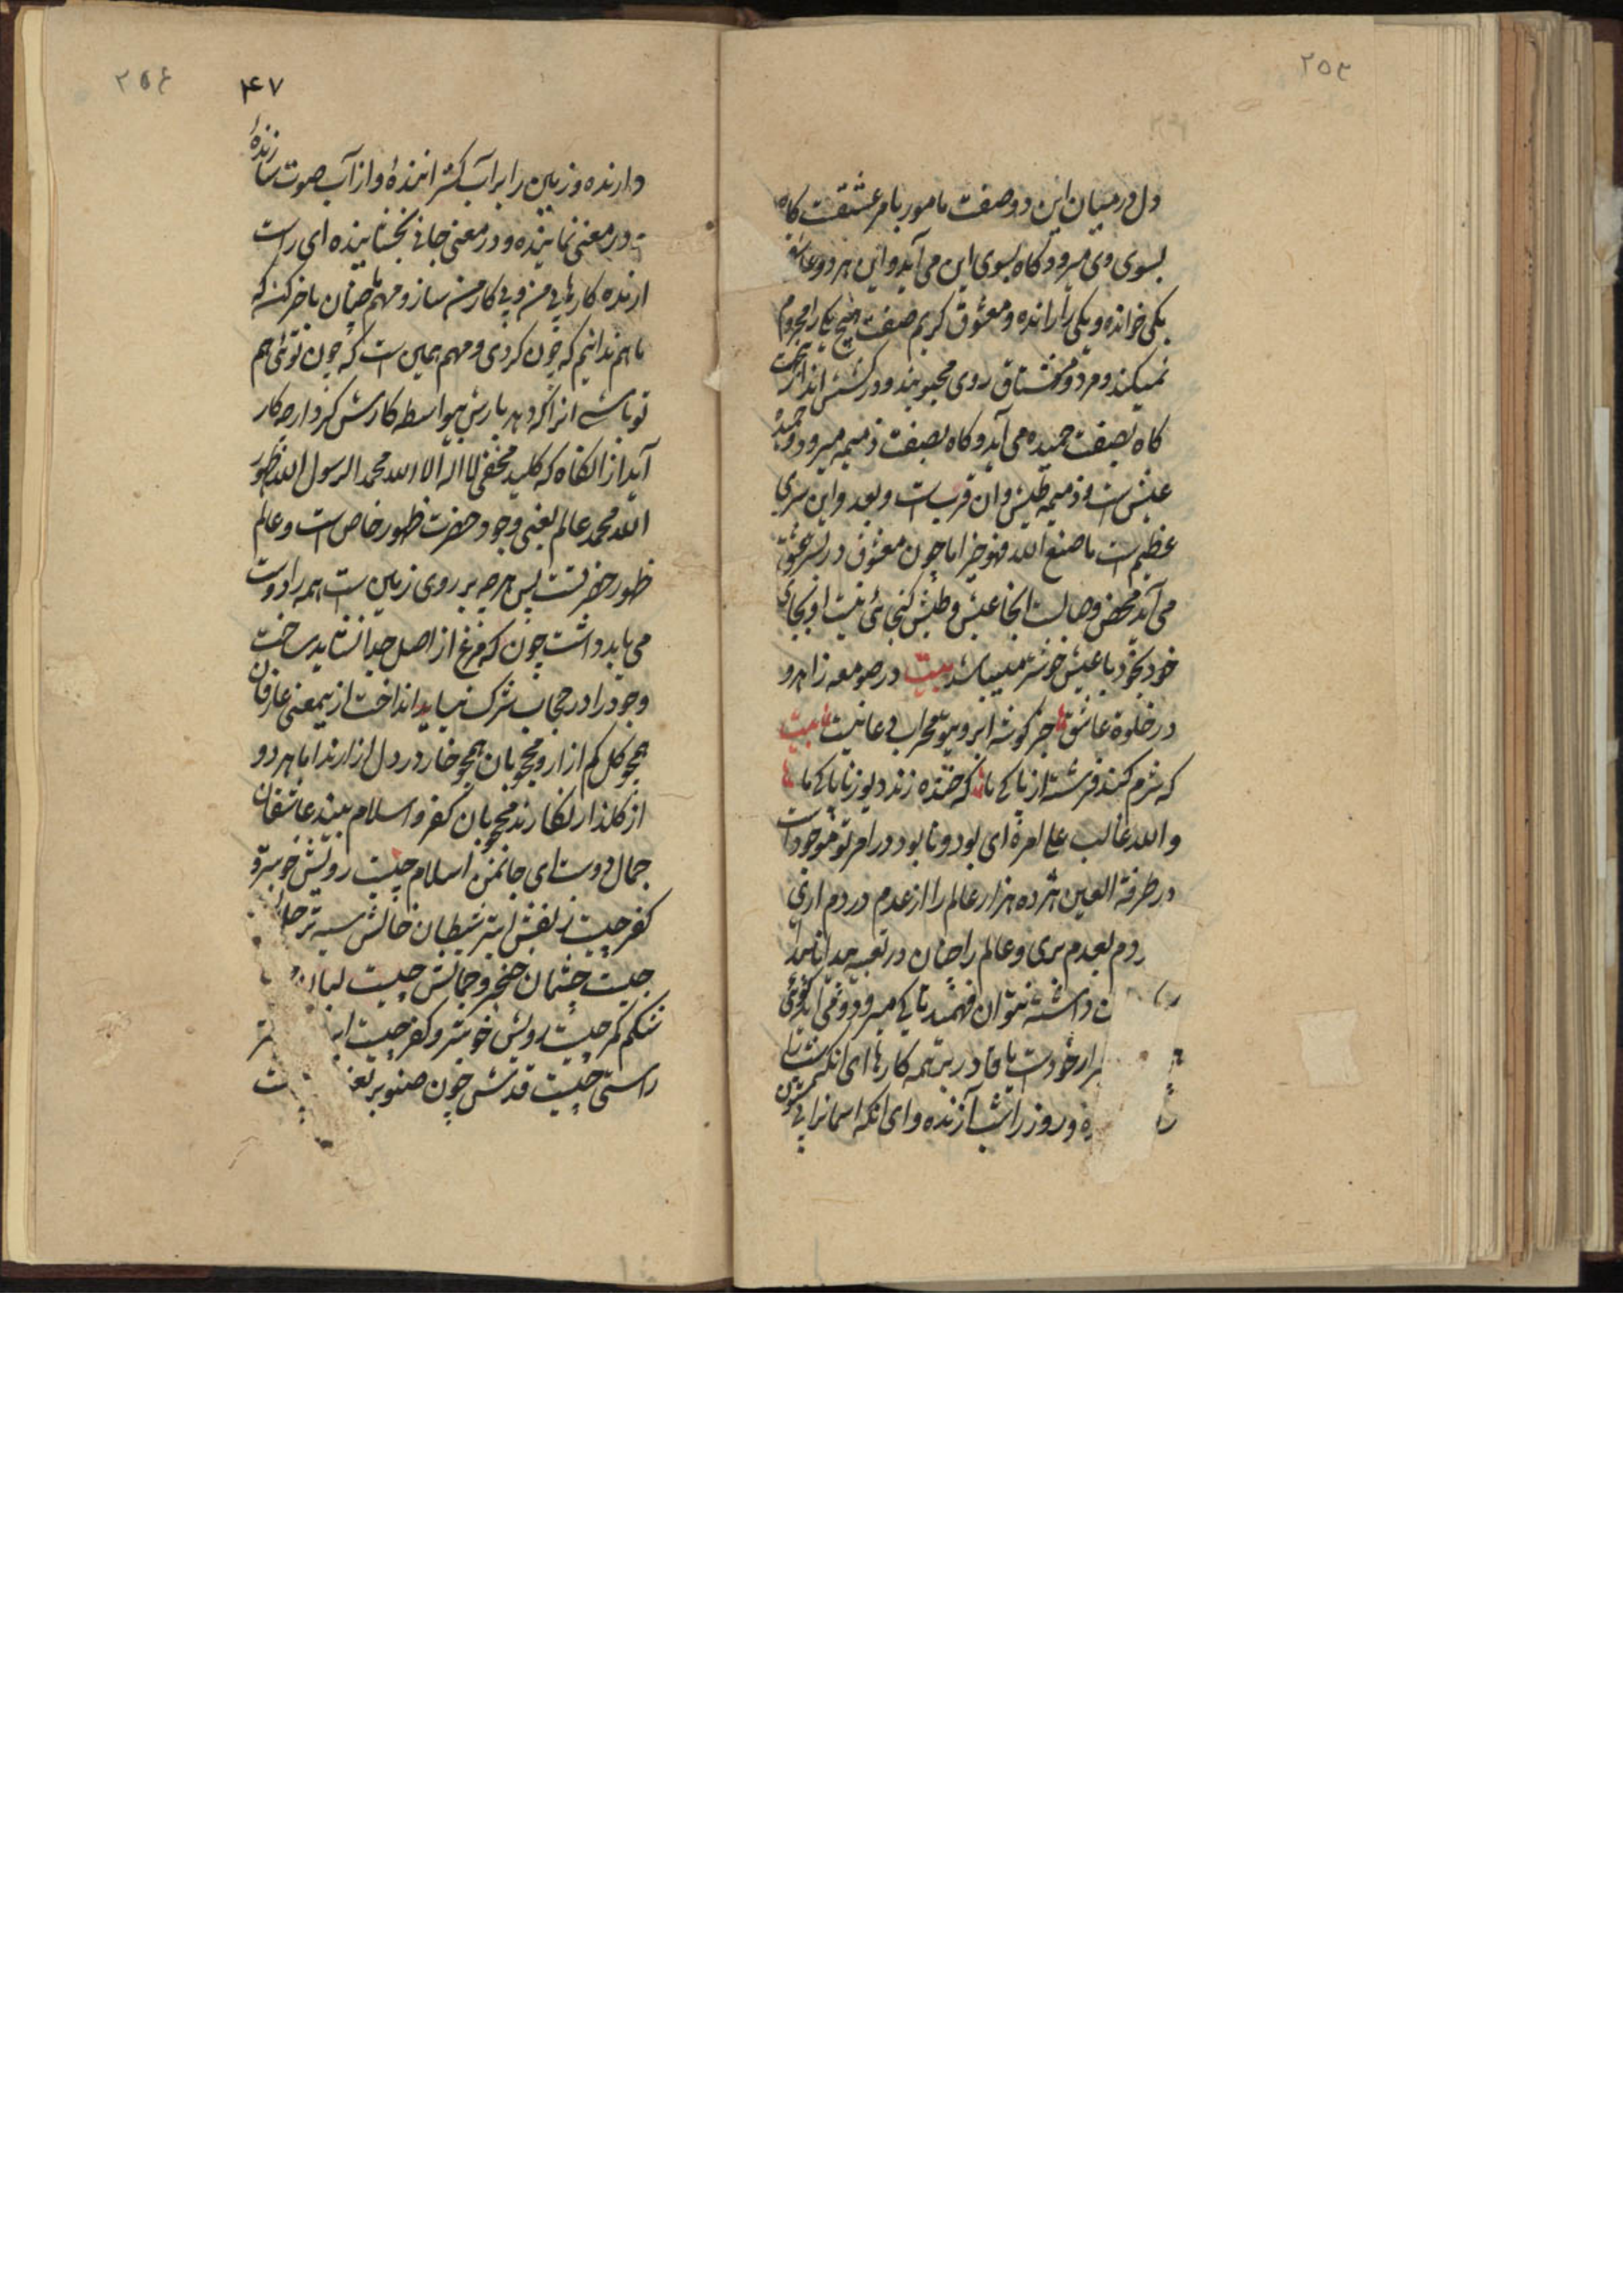 ۲۵۳
دل در میان این دو صفت مامور بامر عشقت کاه
بسوی وی میرود کاه بسوی این می آید و این هر دو عاشق
یکی خوانده و یکی را رانده و معشوق کریم صفت هیچ یکی را محروم
نمیکند و مرد و مشتاق روی محبوبند و در کشش اند از محبت
کاه بصفت حمیده می آید و کاه بصفت ذمیمه میرود و حمیده
عیش است و ذمیمه طیش و ان قرب است و بعد و این سری
عظیم است ما صنع الله فهو خیر اما چون معشوق در بر عشق
می آید محض وصالست انجا عیش و طیش کنجائی نیست او بجای
خود بخود با عیش خوشتر میباشد بیت در صومعه زاهد و
در خلوة عاشق جز کوشه ابروی تو محراب دعا نیست بیت
که شرم کند فرشته از پاکی ما که خنده زند دیو ز ناپاکی ما
والله غالب علی امره ای بود و نابود در امر تو موجودات
در طرفة العین هژده هزار عالم را از عدم در دم اری
ودم بعدم بری و عالم را چنان در تعبیه
داشته نتوان فهمید تا کی میرود و فی
خودست یا قادر بر همه کارها ای انکه شب را
و روز را شب آرنده و ای انکه اسمانرا بی ستون
۲۵۴
۴۷
دارنده و زمین را بر آب کشراننده و از آب صوت سازنده
در معنی نماینده و در معنی جانی بخشاینده ای راست
ارنده کارهای من و بی کار من ساز و مهم چنان باخر کن که
ما هم ندانیم که چون کردی و مهم همین است که چون توئی هم
تو باشی انرا که دهد یارش بیواسطه کارش کردار چه کار
آید از انکاه که کلید مخفی لا اله الا الله محمد الرسول الله ظهور
الله محمد عالم یعنی وجود حضرت ظهور خاص است و عالم
ظهور حضرتست پس هرچه بر روی زمین است همه را دوست
می باید داشت چون که فرغ از اصل جدا نشاید ساخت
وجود را در حجاب شرک نباید انداخت ازیمعنی عارفان
همچو کل کم ازار و محجوبان همچو خار در دل ازارند اما هر دو
از کلذار نکارند محجوبان کفر و اسلام بیند عاشقان
جمال دوست ای جانمن اسلام چیست رویش خوبتر و
کفر چیست زلفش ابتر شیطان خالش سیه تر
چیست چشمان خنجر و جانش چیست لبان
شکم کمر چیست رویش خوبتر و کفر چیست
راستی چیست قدش چون صنوبر